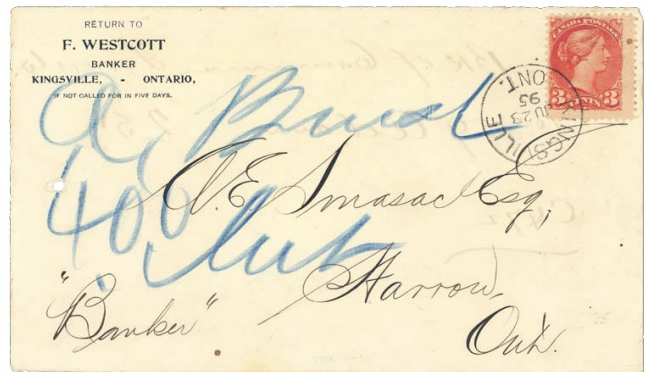 RETURN TO
F. WESTCOTT
BANKER
KINGSVILLE, - ONTARIO,
IF NOT CALLED FOR IN FIVE DAYS.
CANADA POSTAGE
3 CENTS 3
KINGSVILLE ONT.
JU 23
95
A, 
400
Esq,
"Banker"
Harrow,
Ont.